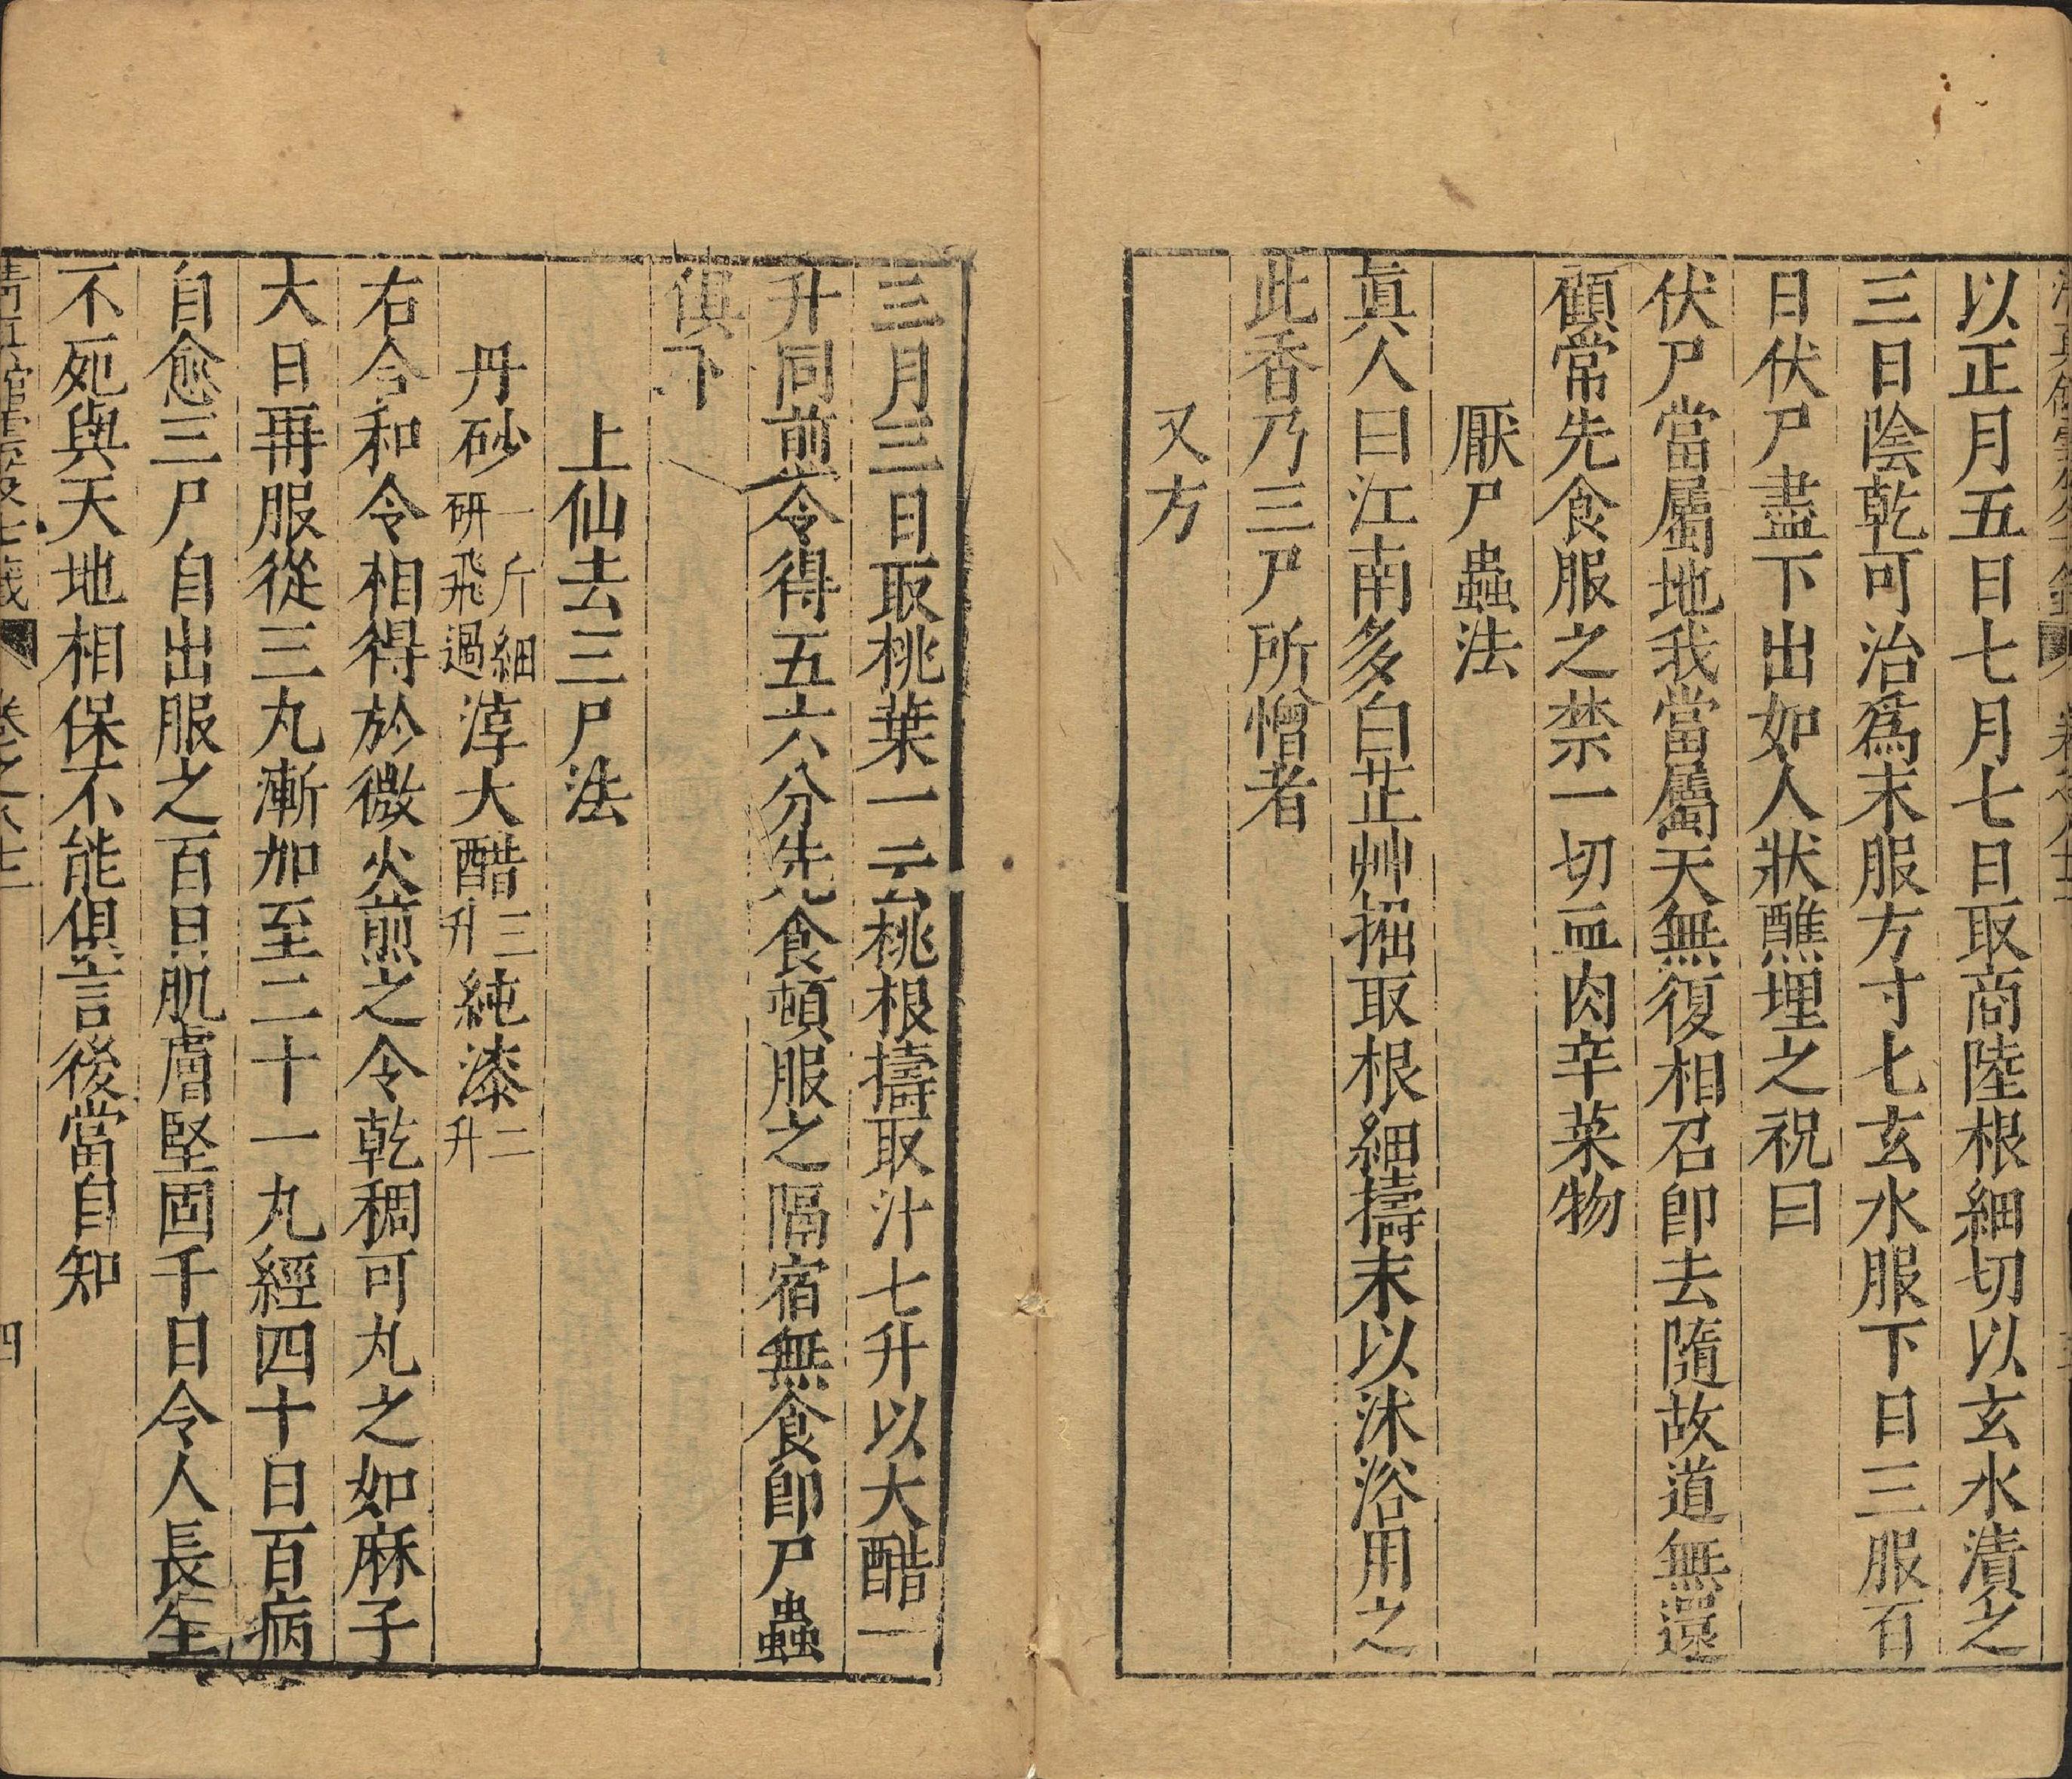 以正月五日七月七日取商陸根細切以玄水漬之
三日陰乾可治爲末服方寸七玄水服下日三服百
日伏尸盡下出如人狀醮埋之祝曰
伏尸當屬地我當屬天無復相召卽去隨故道無還
顧常先食服之禁一切血肉辛菜物
厭尸蟲法
眞人曰江南多白芷艸掘取根細擣末以沐浴用之
此香乃三尸所憎者
又方
三月三日取桃葉一云桃根擣取汁七升以大醋一
升同煎令得五六分先食頓服之隔宿無食卽尸蟲
俱下
上仙去三尸法
丹砂一斤細研飛過淳大醋三升純漆二升
右合和令相得於微火煎之令乾稠可丸之如麻子
大日再服從三丸漸加至二十一丸經四十日百病
自愈三尸自出服之百日肌膚堅固千日令人長生
不死與天地相保不能俱言後當自知
卷之八十三
四